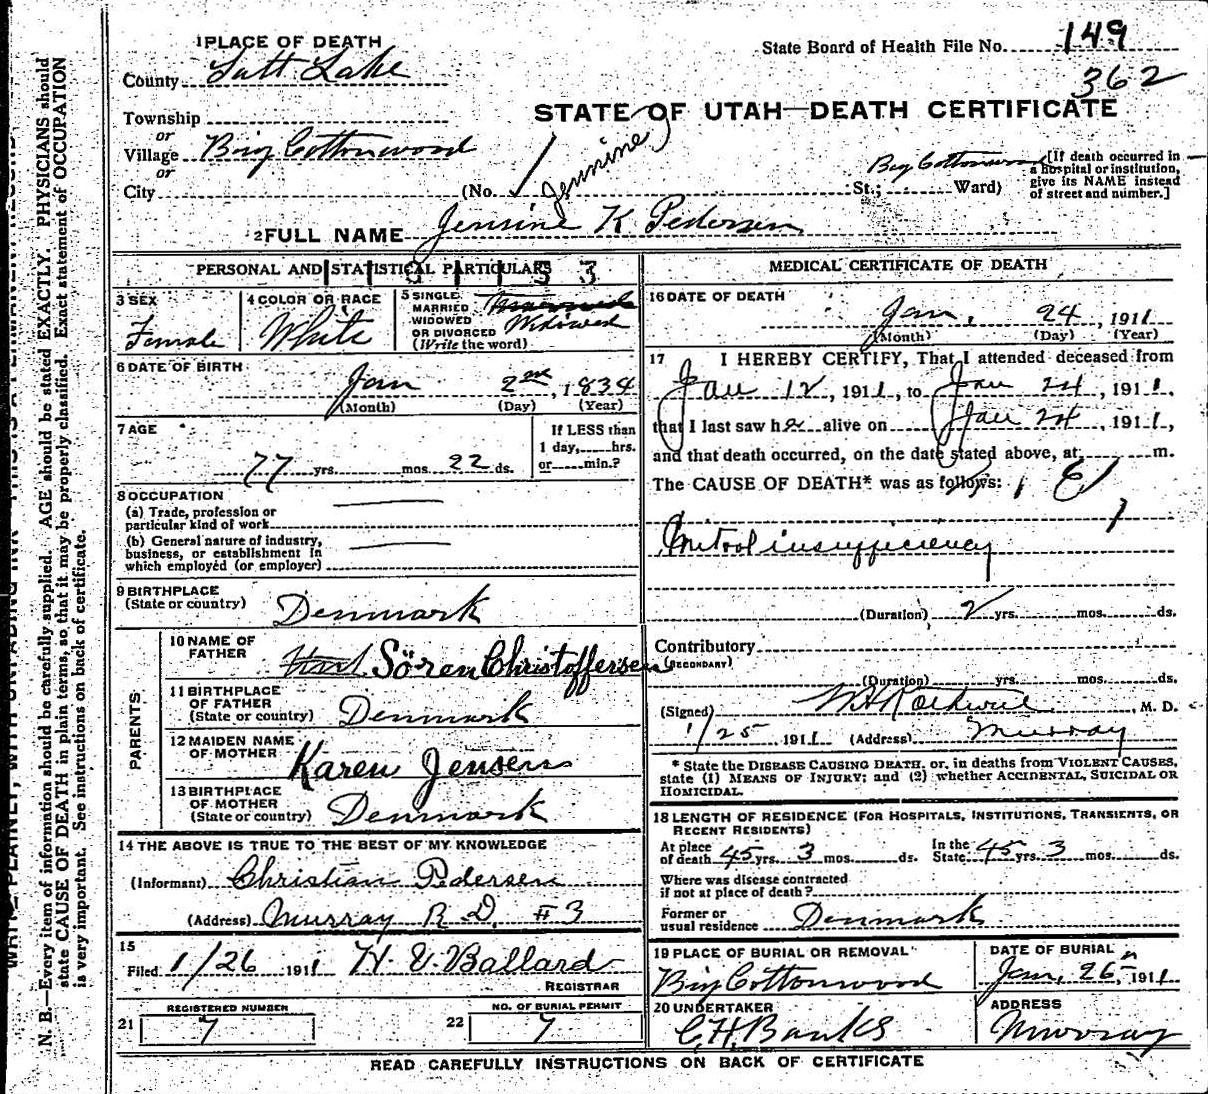 1 PLACE OF DEATH
County Salt Lake
State Board of Health File No. 149
362
STATE OF UTAH—DEATH CERTIFICATE
Township
or
Village Big Cottonwood
or
City (No. Big Cottonwood St.; Ward)
[If death occurred in
a hospital or institution,
give its NAME instead
of street and number.]
Jennine
2 FULL NAME Jensine K Pedersen
PERSONAL AND STATISTICAL PARTICULARS
3 SEX
Female
4 COLOR OR RACE
White
5 SINGLE
MARRIED
WIDOWED
OR DIVORCED
(Write the word)
Widowed
6 DATE OF BIRTH
Jan 2nd, 1834
(Month) (Day) (Year)
7 AGE
77 yrs. mos. 22 ds.
If LESS than
1 day, hrs.
or min.?
8 OCCUPATION
(a) Trade, profession or
particular kind of work
(b) General nature of industry,
business, or establishment in
which employed (or employer)
9 BIRTHPLACE
(State or country) Denmark
PARENTS
10 NAME OF
FATHER Sören Christoffersen
11 BIRTHPLACE
OF FATHER
(State or country) Denmark
12 MAIDEN NAME
OF MOTHER Karen Jensen
13 BIRTHPLACE
OF MOTHER
(State or country) Denmark
14 THE ABOVE IS TRUE TO THE BEST OF MY KNOWLEDGE
(Informant) Christian Pedersen
(Address) Murray R.D. #3
15
Filed 1/26 1911 H. V. Ballard
REGISTRAR
REGISTERED NUMBER
21 7
NO. OF BURIAL PERMIT
22 7
MEDICAL CERTIFICATE OF DEATH
16 DATE OF DEATH
Jan. 24, 1911
(Month) (Day) (Year)
17 I HEREBY CERTIFY, That I attended deceased from
Jan 12, 1911, to Jan 24, 1911,
that I last saw her alive on Jan 24, 1911,
and that death occurred, on the date stated above, at m.
The CAUSE OF DEATH* was as follows:
Mitral insufficiency
(Duration) 2 yrs. mos. ds.
Contributory
(SECONDARY)
(Duration) yrs. mos. ds.
(Signed) M. D.
1/25 1911 (Address) Murray
* State the DISEASE CAUSING DEATH, or, in deaths from VIOLENT CAUSES,
state (1) MEANS OF INJURY; and (2) whether ACCIDENTAL, SUICIDAL OR
HOMICIDAL.
18 LENGTH OF RESIDENCE (FOR HOSPITALS, INSTITUTIONS, TRANSIENTS, OR
RECENT RESIDENTS)
At place
of death 45 yrs. 3 mos. ds. In the
State 45 yrs. 3 mos. ds.
Where was disease contracted
if not at place of death?
Former or
usual residence Denmark
19 PLACE OF BURIAL OR REMOVAL
Big Cottonwood
DATE OF BURIAL
Jan. 26, 1911
20 UNDERTAKER
C. H. Banks
ADDRESS
Murray
READ CAREFULLY INSTRUCTIONS ON BACK OF CERTIFICATE
N. B.—Every item of information should be carefully supplied. AGE should be stated EXACTLY. PHYSICIANS should
state CAUSE OF DEATH in plain terms, so that it may be properly classified. Exact statement of OCCUPATION
is very important. See instructions on back of certificate.